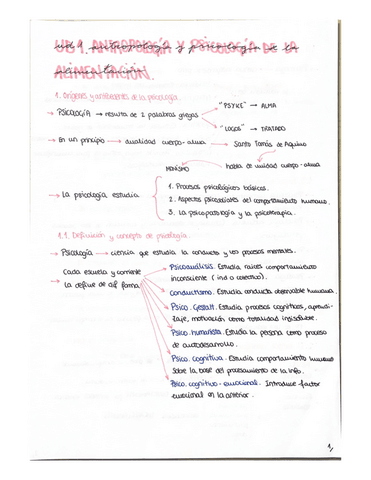 UD 1. ANTROPOLOGÍA Y PSICOLOGÍA DE LA
ALIMENTACIÓN.
1. Orígenes y antecedentes de la psicología.
→ PSICOLOGÍA → resulta de 2 palabras griegas
"PSYKE" → ALMA
"LOGOS" → TRATADO
→ En un principio → dualidad cuerpo-alma → Santo Tomás de Aquino
MONISMO
habla de unidad cuerpo-alma
→ La psicología estudia
1. Procesos psicológicos básicos.
2. Aspectos psicosociales del comportamiento humano.
3. La psicopatología y la psicoterapia.
1.1. Definición y concepto de psicología.
→ Psicología → ciencia que estudia la conducta y los procesos mentales.
→ Cada escuela y corriente
la define de dif forma
Psicoanálisis. Estudia raíces comportamiento
inconsciente (ind o colectivo).
Conductismo. Estudia conducta observable humana.
Psico. Gestalt. Estudia procesos cognitivos, aprendi-
zaje, motivación como totalidad indisoluble.
Psico. humanista. Estudia la persona como proceso
de autodesarrollo.
Psico. cognitiva. Estudia comportamiento humano
sobre la base del procesamiento de la info.
Psico. cognitivo-emocional. Introduce factor
emocional en la anterior.
1/